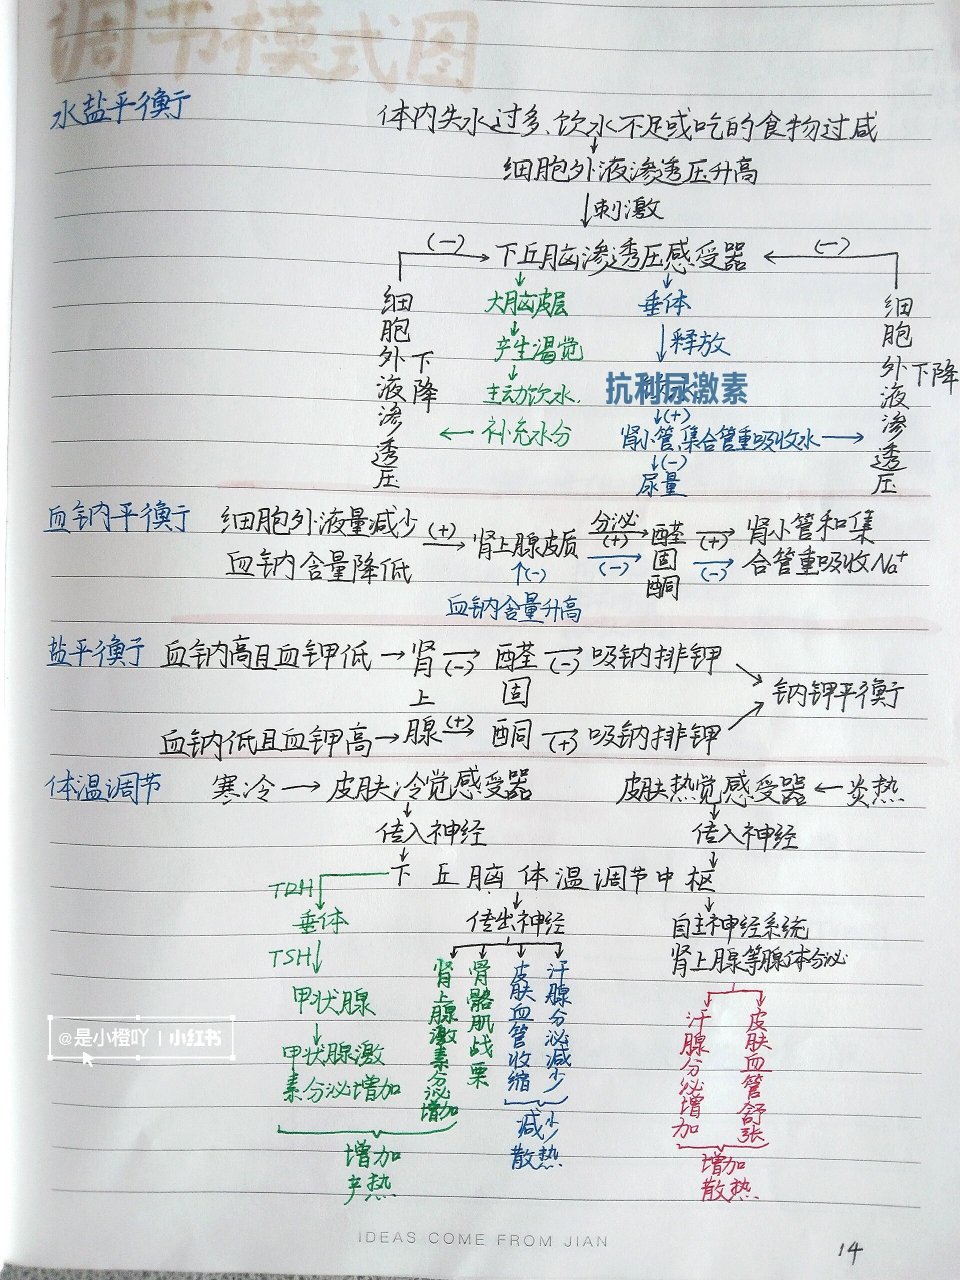 调节模式图
水盐平衡
体内失水过多、饮水不足或吃的食物过咸
↓
细胞外液渗透压升高
↓刺激
(一)
下丘脑渗透压感受器
(一)
细胞外液渗透压
下降
大脑皮层
↓
产生渴觉
↓
主动饮水
补充水分
垂体
↓释放
抗利尿激素
↓(+)
肾小管、集合管重吸收水
↓(-)
尿量
细胞外液渗透压
下降
血钠平衡
细胞外液量减少
血钠含量降低
(+)
→
肾上腺皮质
↑(-)
血钠含量升高
分泌
(+)
(-)
醛固酮
(+)
(-)
肾小管和集
合管重吸收Na⁺
盐平衡
血钠高且血钾低
→
肾上腺
(-)
醛固酮
(-)
吸钠排钾
血钠低且血钾高
→
(+)
(+)
吸钠排钾
钠钾平衡
体温调节
寒冷→皮肤冷觉感受器
皮肤热觉感受器←炎热
传入神经
传入神经
下丘脑体温调节中枢
TRH
垂体
TSH↓
甲状腺
↓
甲状腺激
素分泌增加
传出神经
肾上腺激素分泌增加
骨骼肌战栗
皮肤血管收缩
汗腺分泌减少
增加
产热
减少
散热
自主神经系统
肾上腺等腺体分泌
汗腺分泌增加
皮肤血管舒张
增加
散热
@是小橙吖 | 小红书
IDEAS COME FROM JIAN
14